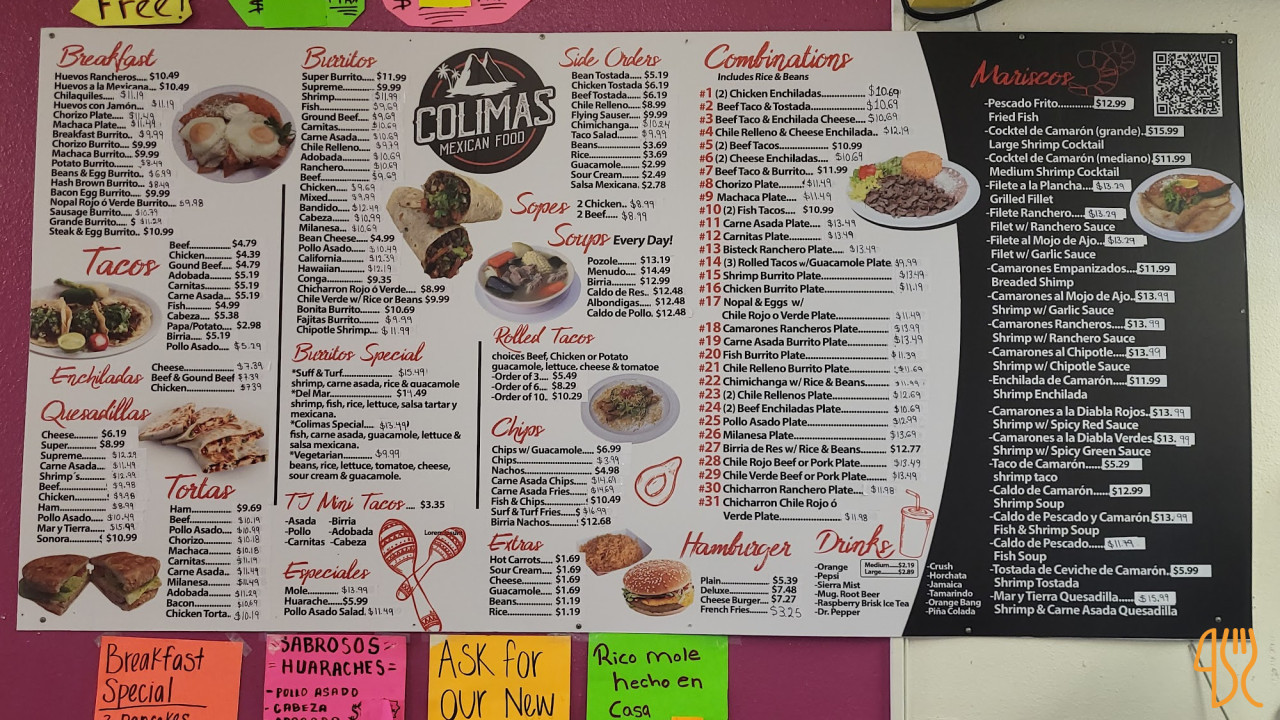 Free!
Breakfast
Huevos Rancheros.... $10.49
Huevos a la Mexicana.... $10.49
Chilaquiles..... $11.19
Huevos con Jamón... $11.19
Chorizo Plate..... $11.49
Machaca Plate.... $11.49
Breakfast Burrito... $9.99
Chorizo Burrito.... $9.99
Machaca Burrito... $9.99
Potato Burrito.... $8.49
Beans & Egg Burrito.. $6.99
Hash Brown Burrito... $8.49
Bacon Egg Burrito... $9.99
Nopal Rojo ó Verde Burrito... $9.98
Sausage Burrito... $10.79
Grande Burrito... $11.29
Steak & Egg Burrito.. $10.99
Tacos
Beef.................. $4.79
Chicken............. $4.39
Gound Beef...... $4.79
Adobada.......... $5.19
Carnitas........... $5.19
Carne Asada.... $5.19
Fish.......... $4.99
Cabeza....... $5.38
Papa/Potato.... $2.98
Birria...... $5.19
Pollo Asado.... $5.29
Enchiladas
Cheese............... $7.39
Beef & Gound Beef $7.39
Chicken............. $7.39
Quesadillas
Cheese......... $6.19
Super.......... $8.99
Supreme....... $12.29
Carne Asada.... $11.49
Shrimp´s........ $12.99
Beef............ $9.98
Chicken........ $9.98
Ham............. $8.99
Pollo Asado.... $10.49
Mar y Tierra.... $15.99
Sonora.......... $10.99
Tortas
Ham................ $9.69
Beef................ $10.19
Pollo Asado.... $10.99
Chorizo........... $10.18
Machaca........ $10.18
Carnitas......... $11.19
Carne Asada... $11.49
Milanesa........ $11.49
Adobada....... $11.29
Bacon............ $10.69
Chicken Torta.. $10.19
Burritos
Super Burrito.... $11.99
Supreme........... $9.99
Shrimp............. $11.99
Fish.................. $9.69
Ground Beef.... $9.69
Carnitas........... $10.69
Carne Asada.... $10.69
Chile Relleno... $9.79
Adobada.......... $10.69
Ranchero........ $10.69
Beef................ $9.69
Chicken..... $9.69
Mixed....... $9.99
Bandido.... $12.49
Cabeza...... $10.99
Milanesa... $10.69
Bean Cheese.... $4.99
Pollo Asado..... $10.49
California....... $12.39
Hawaiian........ $12.19
Conga............ $9.35
Chicharron Rojo ó Verde.... $8.99
Chile Verde w/ Rice or Beans $9.99
Bonita Burrito.......... $10.69
Fajitas Burrito........ $9.99
Chipotle Shrimp.... $11.99
Burritos Special
*Suff & Turf.................. $15.49
shrimp, carne asada, rice & guacamole
*Del Mar...................... $14.49
shrimp, fish, rice, lettuce, salsa tartar y
mexicana.
*Colimas Special.... $13.49
fish, carne asada, guacamole, lettuce &
salsa mexicana.
*Vegetarian........... $9.99
beans, rice, lettuce, tomatoe, cheese,
sour cream & guacamole.
TJ Mini Tacos.... $3.35
-Asada -Birria
-Pollo -Adobada
-Carnitas -Cabeza
Especiales
Mole............. $13.99
Huarache..... $5.99
Pollo Asado Salad.. $11.49
COLIMAS
MEXICAN FOOD
Side Orders
Bean Tostada..... $5.19
Chicken Tostada $6.19
Beef Tostada..... $6.19
Chile Relleno.... $8.99
Flying Sauser... $9.99
Chimichanga.... $10.24
Taco Salad........ $9.99
Beans................ $3.69
Rice.................. $3.69
Guacamole...... $2.99
Sour Cream..... $2.49
Salsa Mexicana. $2.78
Sopes
2 Chicken.. $8.99
2 Beef..... $8.99
Soups Every Day!
Pozole............ $13.19
Menudo......... $14.49
Birria.............. $12.99
Caldo de Res.. $12.48
Albondigas.... $12.48
Caldo de Pollo. $12.48
Rolled Tacos
choices Beef, Chicken or Potato
guacamole, lettuce, cheese & tomatoe
-Order of 3.... $5.49
-Order of 6.... $8.29
-Order of 10.. $10.29
Chips
Chips w/ Guacamole.... $6.99
Chips......................... $3.99
Nachos...................... $4.98
Carne Asada Chips...... $14.69
Carne Asada Fries...... $14.69
Fish & Chips............. $10.49
Surf & Turf Fries...... $16.99
Birria Nachos.......... $12.68
Extras
Hot Carrots.... $1.69
Sour Cream.... $1.69
Cheese.......... $1.69
Guacamole.... $1.69
Beans............ $1.19
Rice............... $1.19
Combinations
Includes Rice & Beans
#1 (2) Chicken Enchiladas.............. $10.69
#2 Beef Taco & Tostada................. $10.69
#3 Beef Taco & Enchilada Cheese.... $10.69
#4 Chile Relleno & Cheese Enchilada.. $12.19
#5 (2) Beef Tacos.......... $10.99
#6 (2) Cheese Enchiladas.... $10.69
#7 Beef Taco & Burrito... $11.99
#8 Chorizo Plate......... $11.49
#9 Machaca Plate...... $11.49
#10 (2) Fish Tacos.... $10.99
#11 Carne Asada Plate..... $13.49
#12 Carnitas Plate........... $13.49
#13 Bisteck Ranchero Plate... $13.49
#14 (3) Rolled Tacos w/Guacamole Plate. $9.99
#15 Shrimp Burrito Plate.................. $13.49
#16 Chicken Burrito Plate................ $11.19
#17 Nopal & Eggs w/
Chile Rojo o Verde Plate.............. $11.49
#18 Camarones Rancheros Plate........ $13.99
#19 Carne Asada Burrito Plate.......... $13.49
#20 Fish Burrito Plate.................. $11.39
#21 Chile Relleno Burrito Plate.......... $11.69
#22 Chimichanga w/ Rice & Beans........
#23 (2) Chile Rellenos Plate............ $12.69
#24 (2) Beef Enchiladas Plate.......... $10.69
#25 Pollo Asado Plate.................. $12.99
#26 Milanesa Plate..................... $13.69
#27 Birria de Res w/ Rice & Beans...... $12.77
#28 Chile Rojo Beef or Pork Plate...... $13.49
#29 Chile Verde Beef or Pork Plate..... $13.49
#30 Chicharron Ranchero Plate.... $11.98
#31 Chicharron Chile Rojo ó
Verde Plate................ $11.98
Hamburger
Plain................ $5.39
Deluxe............. $7.48
Cheese Burger.... $7.27
French Fries...... $3.25
Drinks
Medium......$2.19
Large.........$2.89
-Orange
-Pepsi
-Sierra Mist
-Mug. Root Beer
-Raspberry Brisk Ice Tea
-Dr. Pepper
-Crush
-Horchata
-Jamaica
-Tamarindo
-Orange Bang
-Piña Colada
Mariscos
-Pescado Frito............. $12.99
Fried Fish
-Cocktel de Camarón (grande).. $15.99
Large Shrimp Cocktail
-Cocktel de Camarón (mediano) $11.99
Medium Shrimp Cocktail
-Filete a la Plancha.... $13.29
Grilled Fillet
-Filete Ranchero..... $13.29
Filet w/ Ranchero Sauce
-Filete al Mojo de Ajo... $13.29
Filet w/ Garlic Sauce
-Camarones Empanizados... $11.99
Breaded Shimp
-Camarones al Mojo de Ajo.. $13.99
Shrimp w/ Garlic Sauce
-Camarones Rancheros.... $13.99
Shrimp w/ Ranchero Sauce
-Camarones al Chipotle.... $13.99
Shrimp w/ Chipotle Sauce
-Enchilada de Camarón..... $11.99
Shrimp Enchilada
-Camarones a la Diabla Rojos.. $13.99
Shrimp w/ Spicy Red Sauce
-Camarones a la Diabla Verdes $13.99
Shrimp w/ Spicy Green Sauce
-Taco de Camarón..... $5.29
shrimp taco
-Caldo de Camarón...... $12.99
Shrimp Soup
-Caldo de Pescado y Camarón. $13.99
Fish & Shrimp Soup
-Caldo de Pescado..... $11.99
Fish Soup
-Tostada de Ceviche de Camarón.. $5.99
Shrimp Tostada
-Mar y Tierra Quesadilla..... $15.99
Shrimp & Carne Asada Quesadilla
Breakfast
Special
SABROSOS
=HUARACHES=
- POLLO ASADO
- CABEZA
ASK for
our New
Rico mole
hecho en
Casa